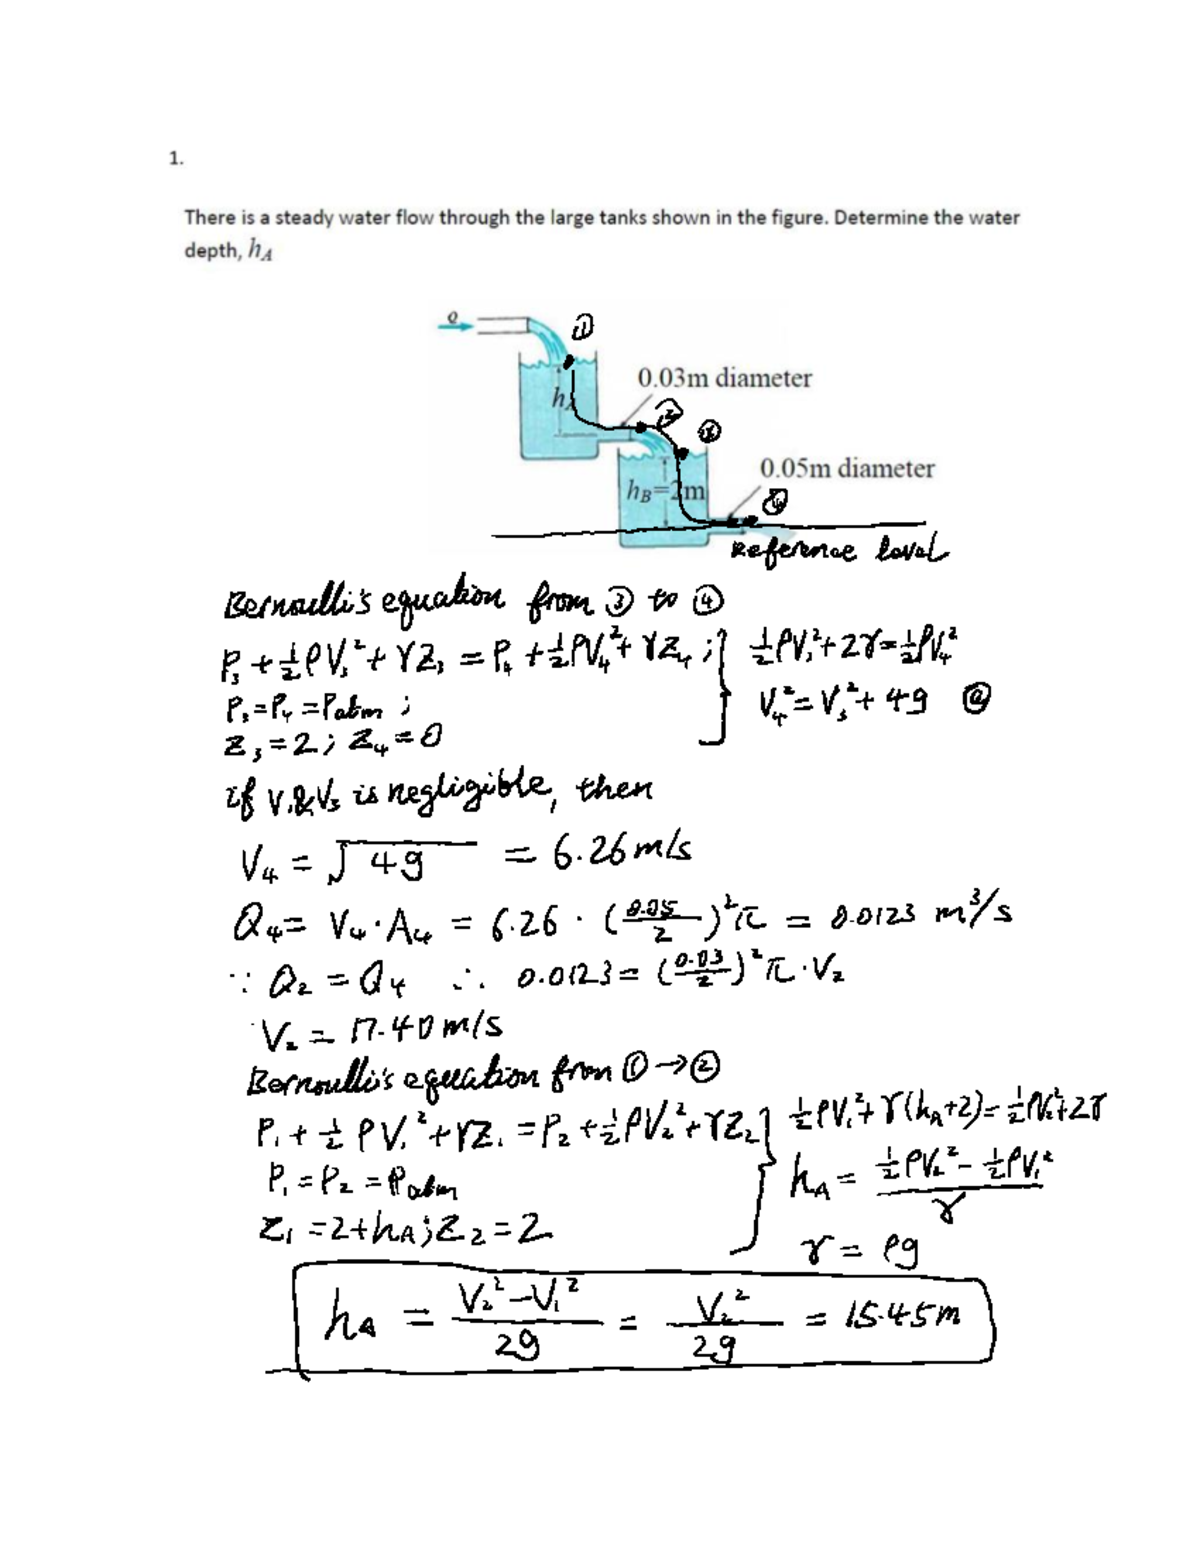 1.
There is a steady water flow through the large tanks shown in the figure. Determine the water
depth, hA
Q
①
0.03m diameter
hA
②
③
0.05m diameter
hB=2m
④
Reference level
Bernoulli's equation from ③ to ④
P₃ + ½ρV₃² + γZ₃ = P₄ + ½ρV₄² + γZ₄ ; } ½ρV₃² + 2γ = ½ρV₄²
P₃ = P₄ = Patm ;
V₄² = V₃² + 4g ⓐ
Z₃ = 2 ; Z₄ = 0
if V₁&V₃ is negligible, then
V₄ = √4g = 6.26 m/s
Q₄ = V₄·A₄ = 6.26 · (0.05/2)²π = 0.0123 m³/s
∵ Q₂ = Q₄ ∴ 0.0123 = (0.03/2)²π·V₂
V₂ = 17.40 m/s
Bernoulli's equation from ① → ②
P₁ + ½ρV₁² + γZ₁ = P₂ + ½ρV₂² + γZ₂ } ½ρV₁² + γ(hA+2) = ½ρV₂² + 2γ
P₁ = P₂ = Patm
hA = (½ρV₂² - ½ρV₁²)/γ
Z₁ = 2 + hA ; Z₂ = 2
γ = ρg
hA = (V₂² - V₁²)/2g = V₂²/2g = 15.45m